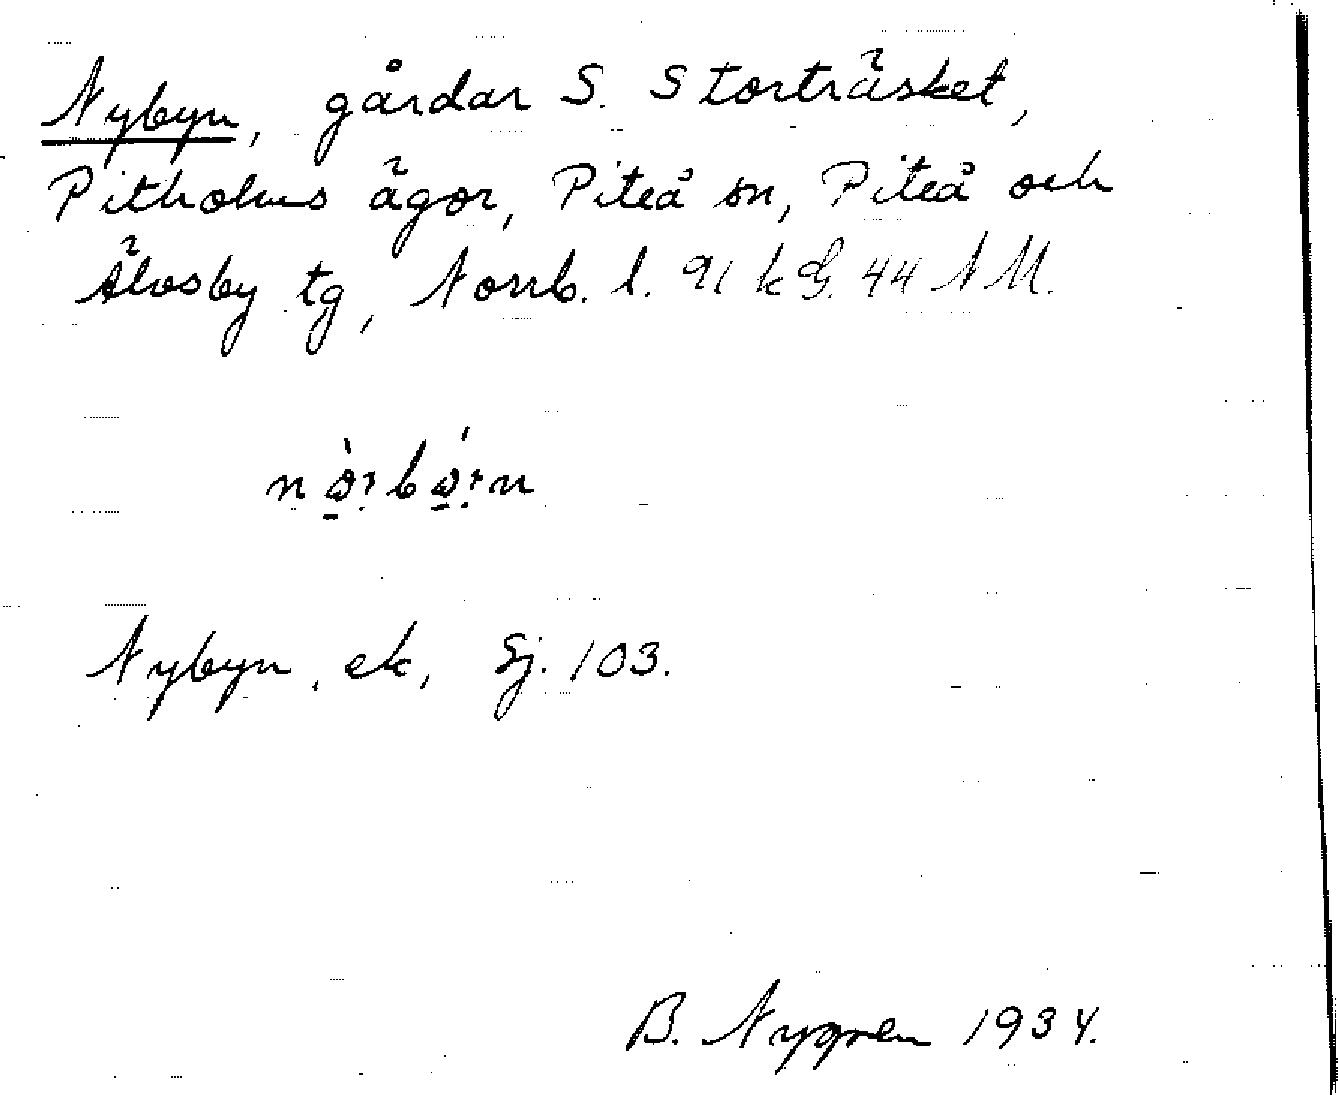 Nybyn, gårdar S. Storträsket,
Pitholms ägor, Piteå sn, Piteå och
Älvsby tg, Norrb. l. 91 k G. 44 NM.
Nybyn, ek, Sj. 103.
B. Nygren 1934.